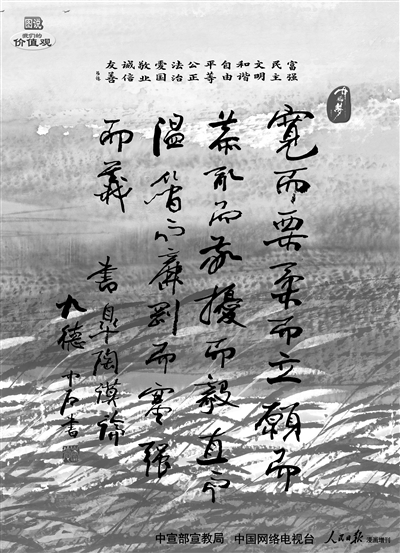 图说
我们的
价值观
富强
民主
文明
和谐
自由
平等
公正
法治
爱国
敬业
诚信
友善
中国梦
寬而栗柔而立願而
恭乱而敬擾而毅直而
温簡而廉剛而塞強
而義 書皋陶謨論
九德 中石書
中宣部宣教局 中国网络电视台 人民日报 漫画增刊